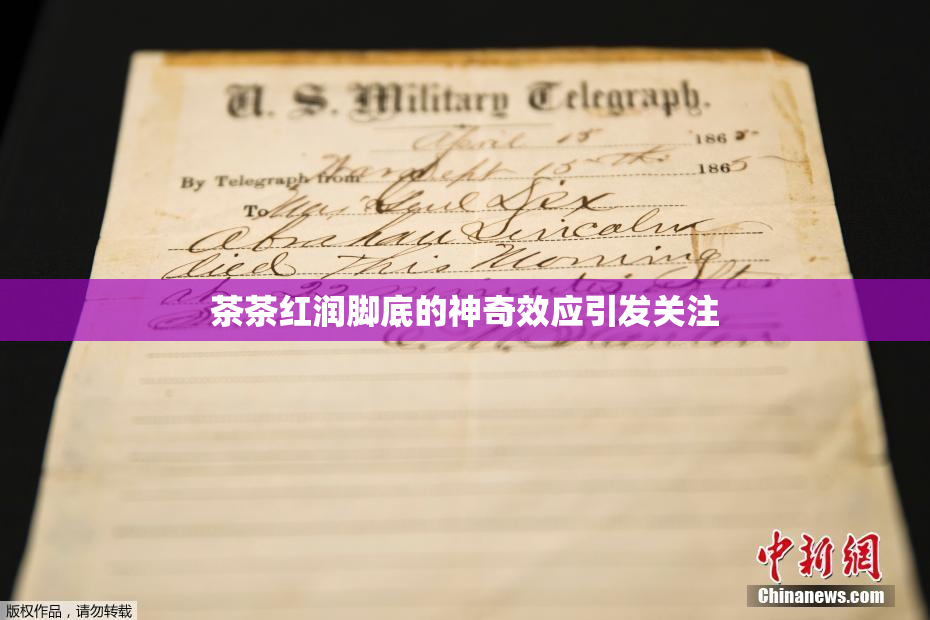 U. S. Military Telegraph.
April 15 1865-
By Telegraph from War Dept 15th 1865
To Maj Genl Dix
Abraham Lincoln
died This Morning
at 22 minutes after
茶茶红润脚底的神奇效应引发关注
E. M. Stanton
中新网
Chinanews.com
版权作品，请勿转载